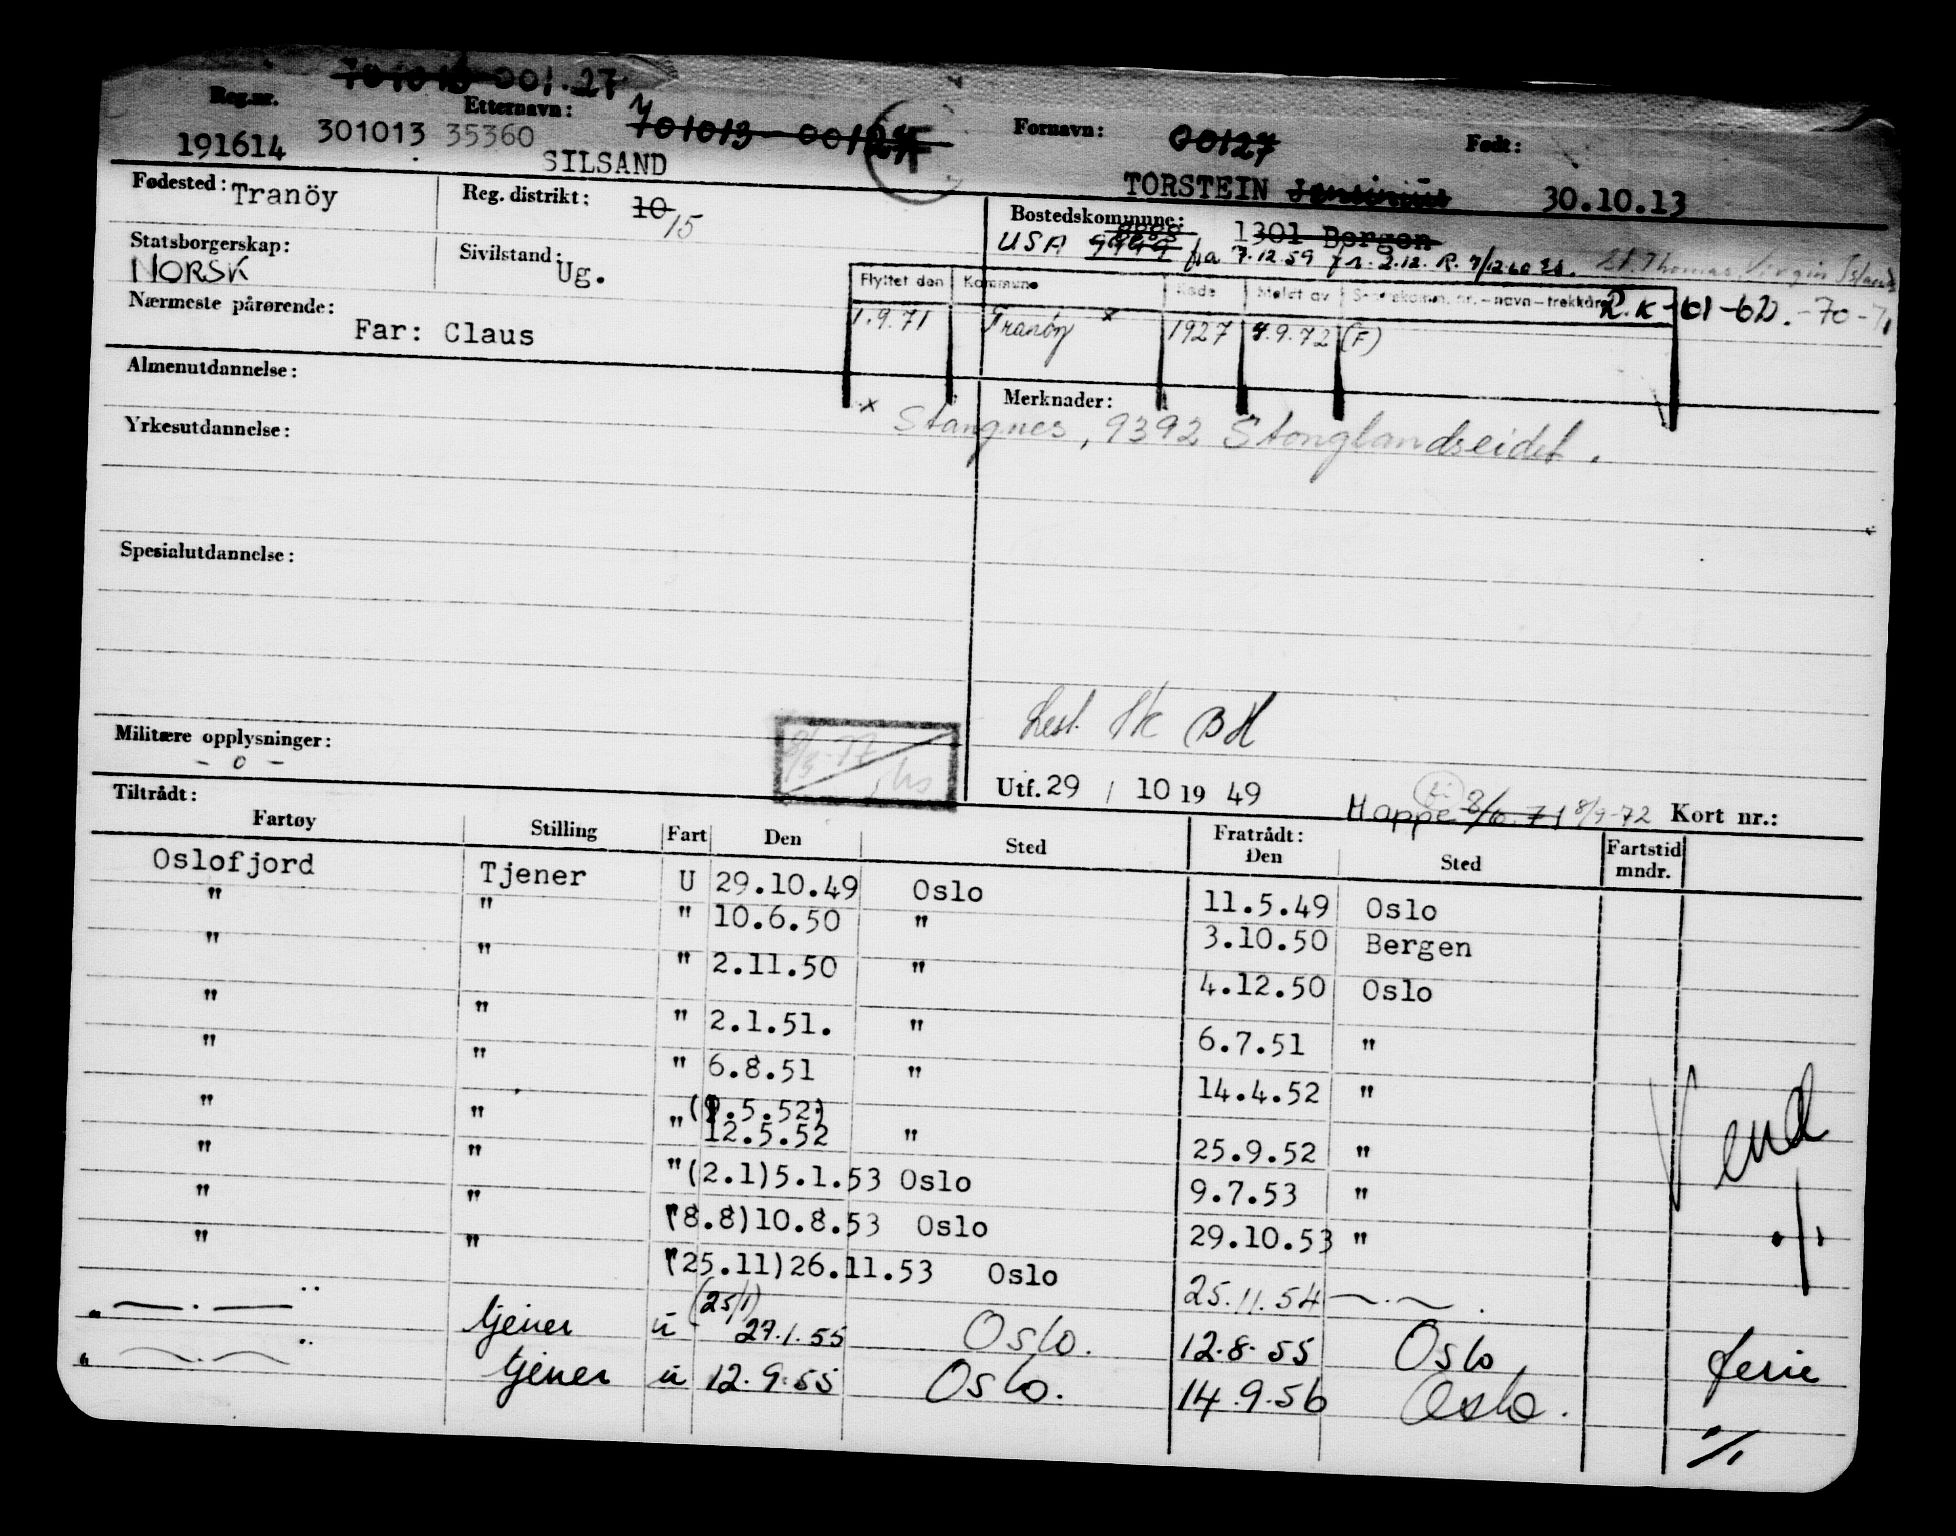 701013 001.27
Reg.nr. Etternavn: Fornavn: Født:
191614 301013 35360 701013-00127 00127
SILSAND TORSTEIN Jensinius 30.10.13
Fødested: Tranöy Reg. distrikt: 10 15 Bostedskommune: 1301 Bergen
USA 9999 fra 7.12.59 fr. 2.12. R. 7/12.60 St. Thomas, Virgin Islands
Statsborgerskap: NORSK Sivilstand: Ug.
Flyttet den Kommune Kode Meldt av Skattekomm. nr. – navn – trekkår R.K-61-62.-70-71
Nærmeste pårørende: Far: Claus
1.9.71 Tranöy x 1927 4.9.72 (F)
Almenutdannelse: Merknader:
x Stangnes, 9392 Stonglandseidet.
Yrkesutdannelse:
Spesialutdannelse:
Best. Hk BH
Militære opplysninger:
- o -
Utf. 29 / 10 19 49 Mappe 3/6.71 8/9-72 Kort nr.:
Tiltrådt: Fratrådt:
Fartøy Stilling Fart Den Sted Den Sted Fartstid mndr.
Oslofjord Tjener U 29.10.49 Oslo 11.5.49 Oslo
" " " 10.6.50 " 3.10.50 Bergen
" " " 2.11.50 " 4.12.50 Oslo
" " " 2.1.51. " 6.7.51 "
" " " 6.8.51 " 14.4.52 "
(9.5.52)
" " " 12.5.52 " 25.9.52 "
" " " (2.1)5.1.53 Oslo 9.7.53 "
" " " (8.8)10.8.53 Oslo 29.10.53 "
" " " (25.11)26.11.53 Oslo 25.11.54 —.—.
Vend
./.
(25/1)
" —.— " tjener u 27.1.55 Oslo. 12.8.55 Oslo, ferie
" —.— " tjener u 12.9.55 Oslo. 14.9.56 Oslo.
%